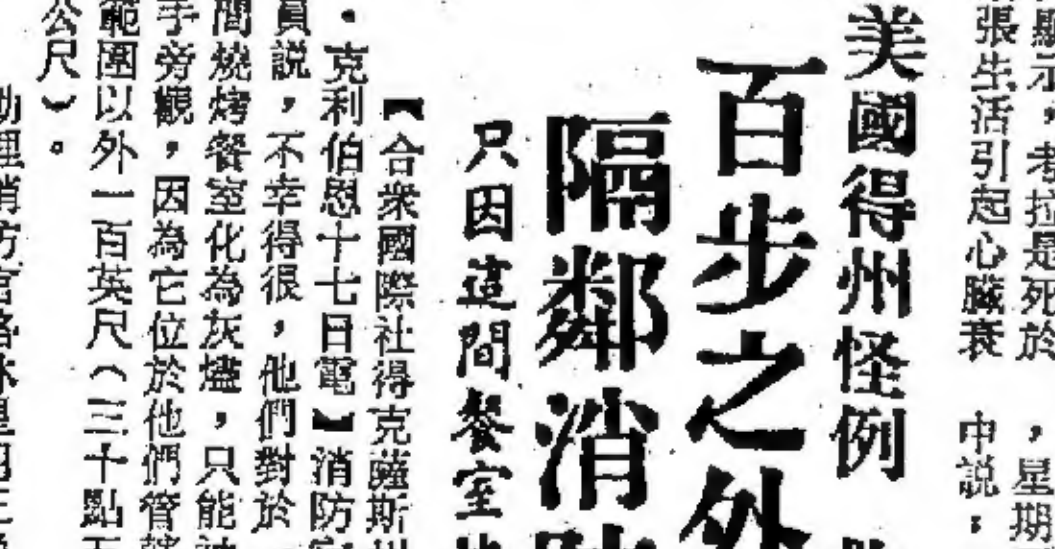 顯示，考拉是死於
，星期
張生活引起心臟衰
中説：
美國得州怪例
百步之外
隔鄰消
只因這間餐室
【合衆國際社得克薩斯
・克利伯恩十七日電】消防
員説，不幸得很，他們對於
間燒烤餐室化為灰燼，只能
手旁觀，因為它位於他們管
範圍以外一百英尺（三十點
公尺）。
消防官